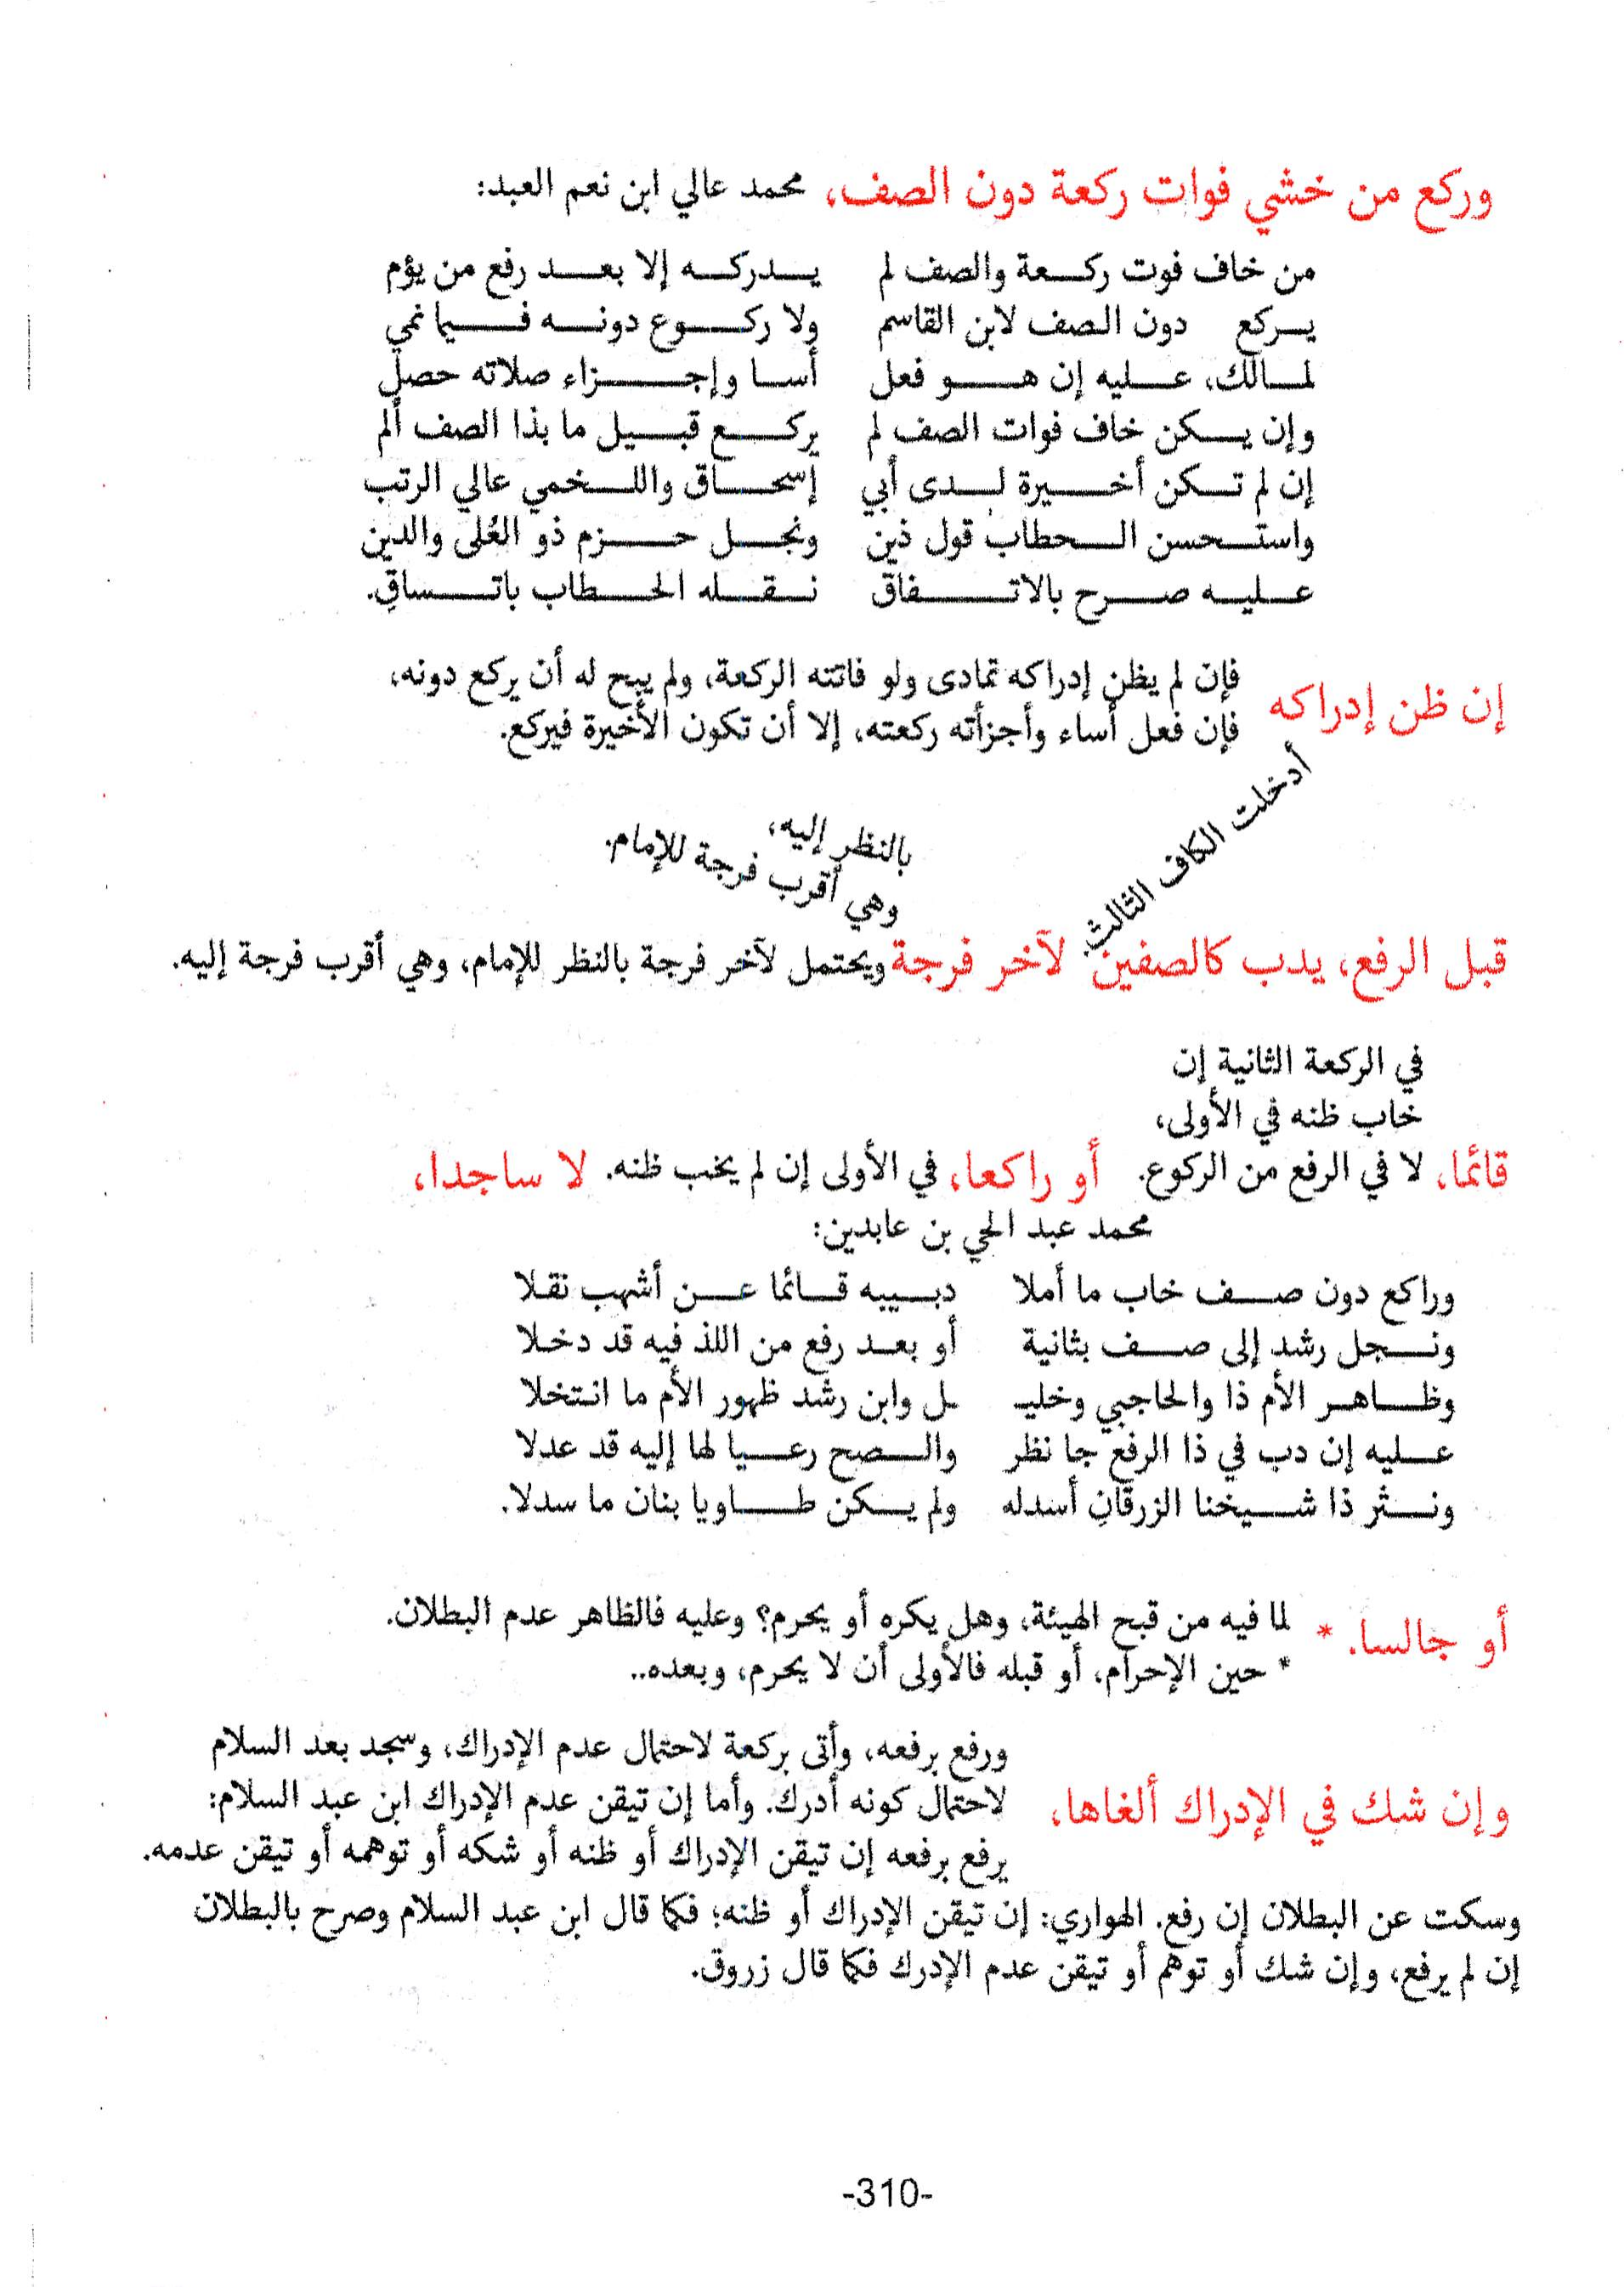 وركع من خشي فوات ركعة دون الصف، محمد عالي ابن نعم العبد:
من خاف فوت ركعة والصف لم يدركه إلا بعد رفع من يؤم
يركع دون الصف لابن القاسم ولا ركوع دونه فيما نمي
لمالك، عليه إن هو فعل أسا وإجزاء صلاته حصل
وإن يكن خاف فوات الصف لم يركع قبيل ما بذا الصف ألم
إن لم تكن أخيرة لدى أبي إسحاق واللخمي عالي الرتب
واستحسن الحطاب قول ذين ونجل حزم ذو العُلى والدين
عليه صرح بالاتفاق نقله الحطاب باتساقِ.
فإن لم يظن إدراكه تمادى ولو فاتته الركعة، ولم يبح له أن يركع دونه،
إن ظن إدراكه
فإن فعل أساء وأجزأته ركعته، إلا أن تكون الأخيرة فيركع.
أدخلت الكاف الثالث.
بالنظر إليه،
وهي أقرب فرجة للإمام.
قبل الرفع، يدب كالصفين لآخر فرجة ويحتمل لآخر فرجة بالنظر للإمام، وهي أقرب فرجة إليه.
في الركعة الثانية إن
خاب ظنه في الأولى،
قائما، لا في الرفع من الركوع. أو راكعا، في الأولى إن لم يخب ظنه. لا ساجدا،
محمد عبد الحي بن عابدين:
وراكع دون صف خاب ما أملا دبيبه قائما عن أشهب نقلا
ونجل رشد إلى صف بثانية أو بعد رفع من اللذ فيه قد دخلا
وظاهر الأم ذا والحاجبي وخليـ ـل وابن رشد ظهور الأم ما انتخلا
عليه إن دب في ذا الرفع جا نظر والصح رعيا لها إليه قد عدلا
ونثر ذا شيخنا الزرقانِ أسدله ولم يكن طاويا بنان ما سدلا.
لما فيه من قبح الهيئة، وهل يكره أو يحرم؟ وعليه فالظاهر عدم البطلان.
أو جالسا. *
* حين الإحرام، أو قبله فالأولى أن لا يحرم، وبعده..
ورفع برفعه، وأتى بركعة لاحتمال عدم الإدراك، وسجد بعد السلام
وإن شك في الإدراك ألغاها،
لاحتمال كونه أدرك. وأما إن تيقن عدم الإدراك ابن عبد السلام:
يرفع برفعه إن تيقن الإدراك أو ظنه أو شكه أو توهمه أو تيقن عدمه.
وسكت عن البطلان إن رفع. الهواري: إن تيقن الإدراك أو ظنه؛ فكما قال ابن عبد السلام وصرح بالبطلان
إن لم يرفع، وإن شك أو توهم أو تيقن عدم الإدرك فكما قال زروق.
-310-